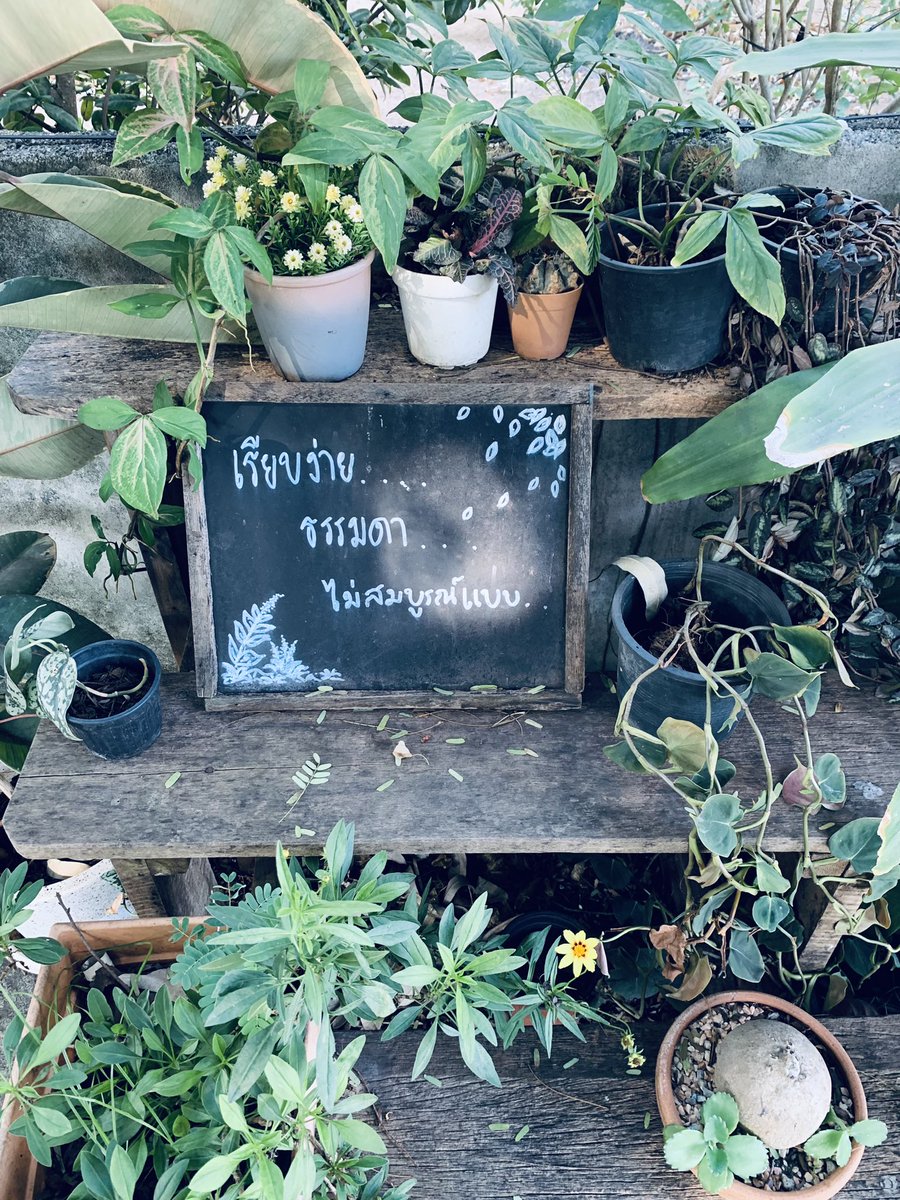 เรียบง่าย.....
ธรรมดา...
ไม่สมบูรณ์แบบ..